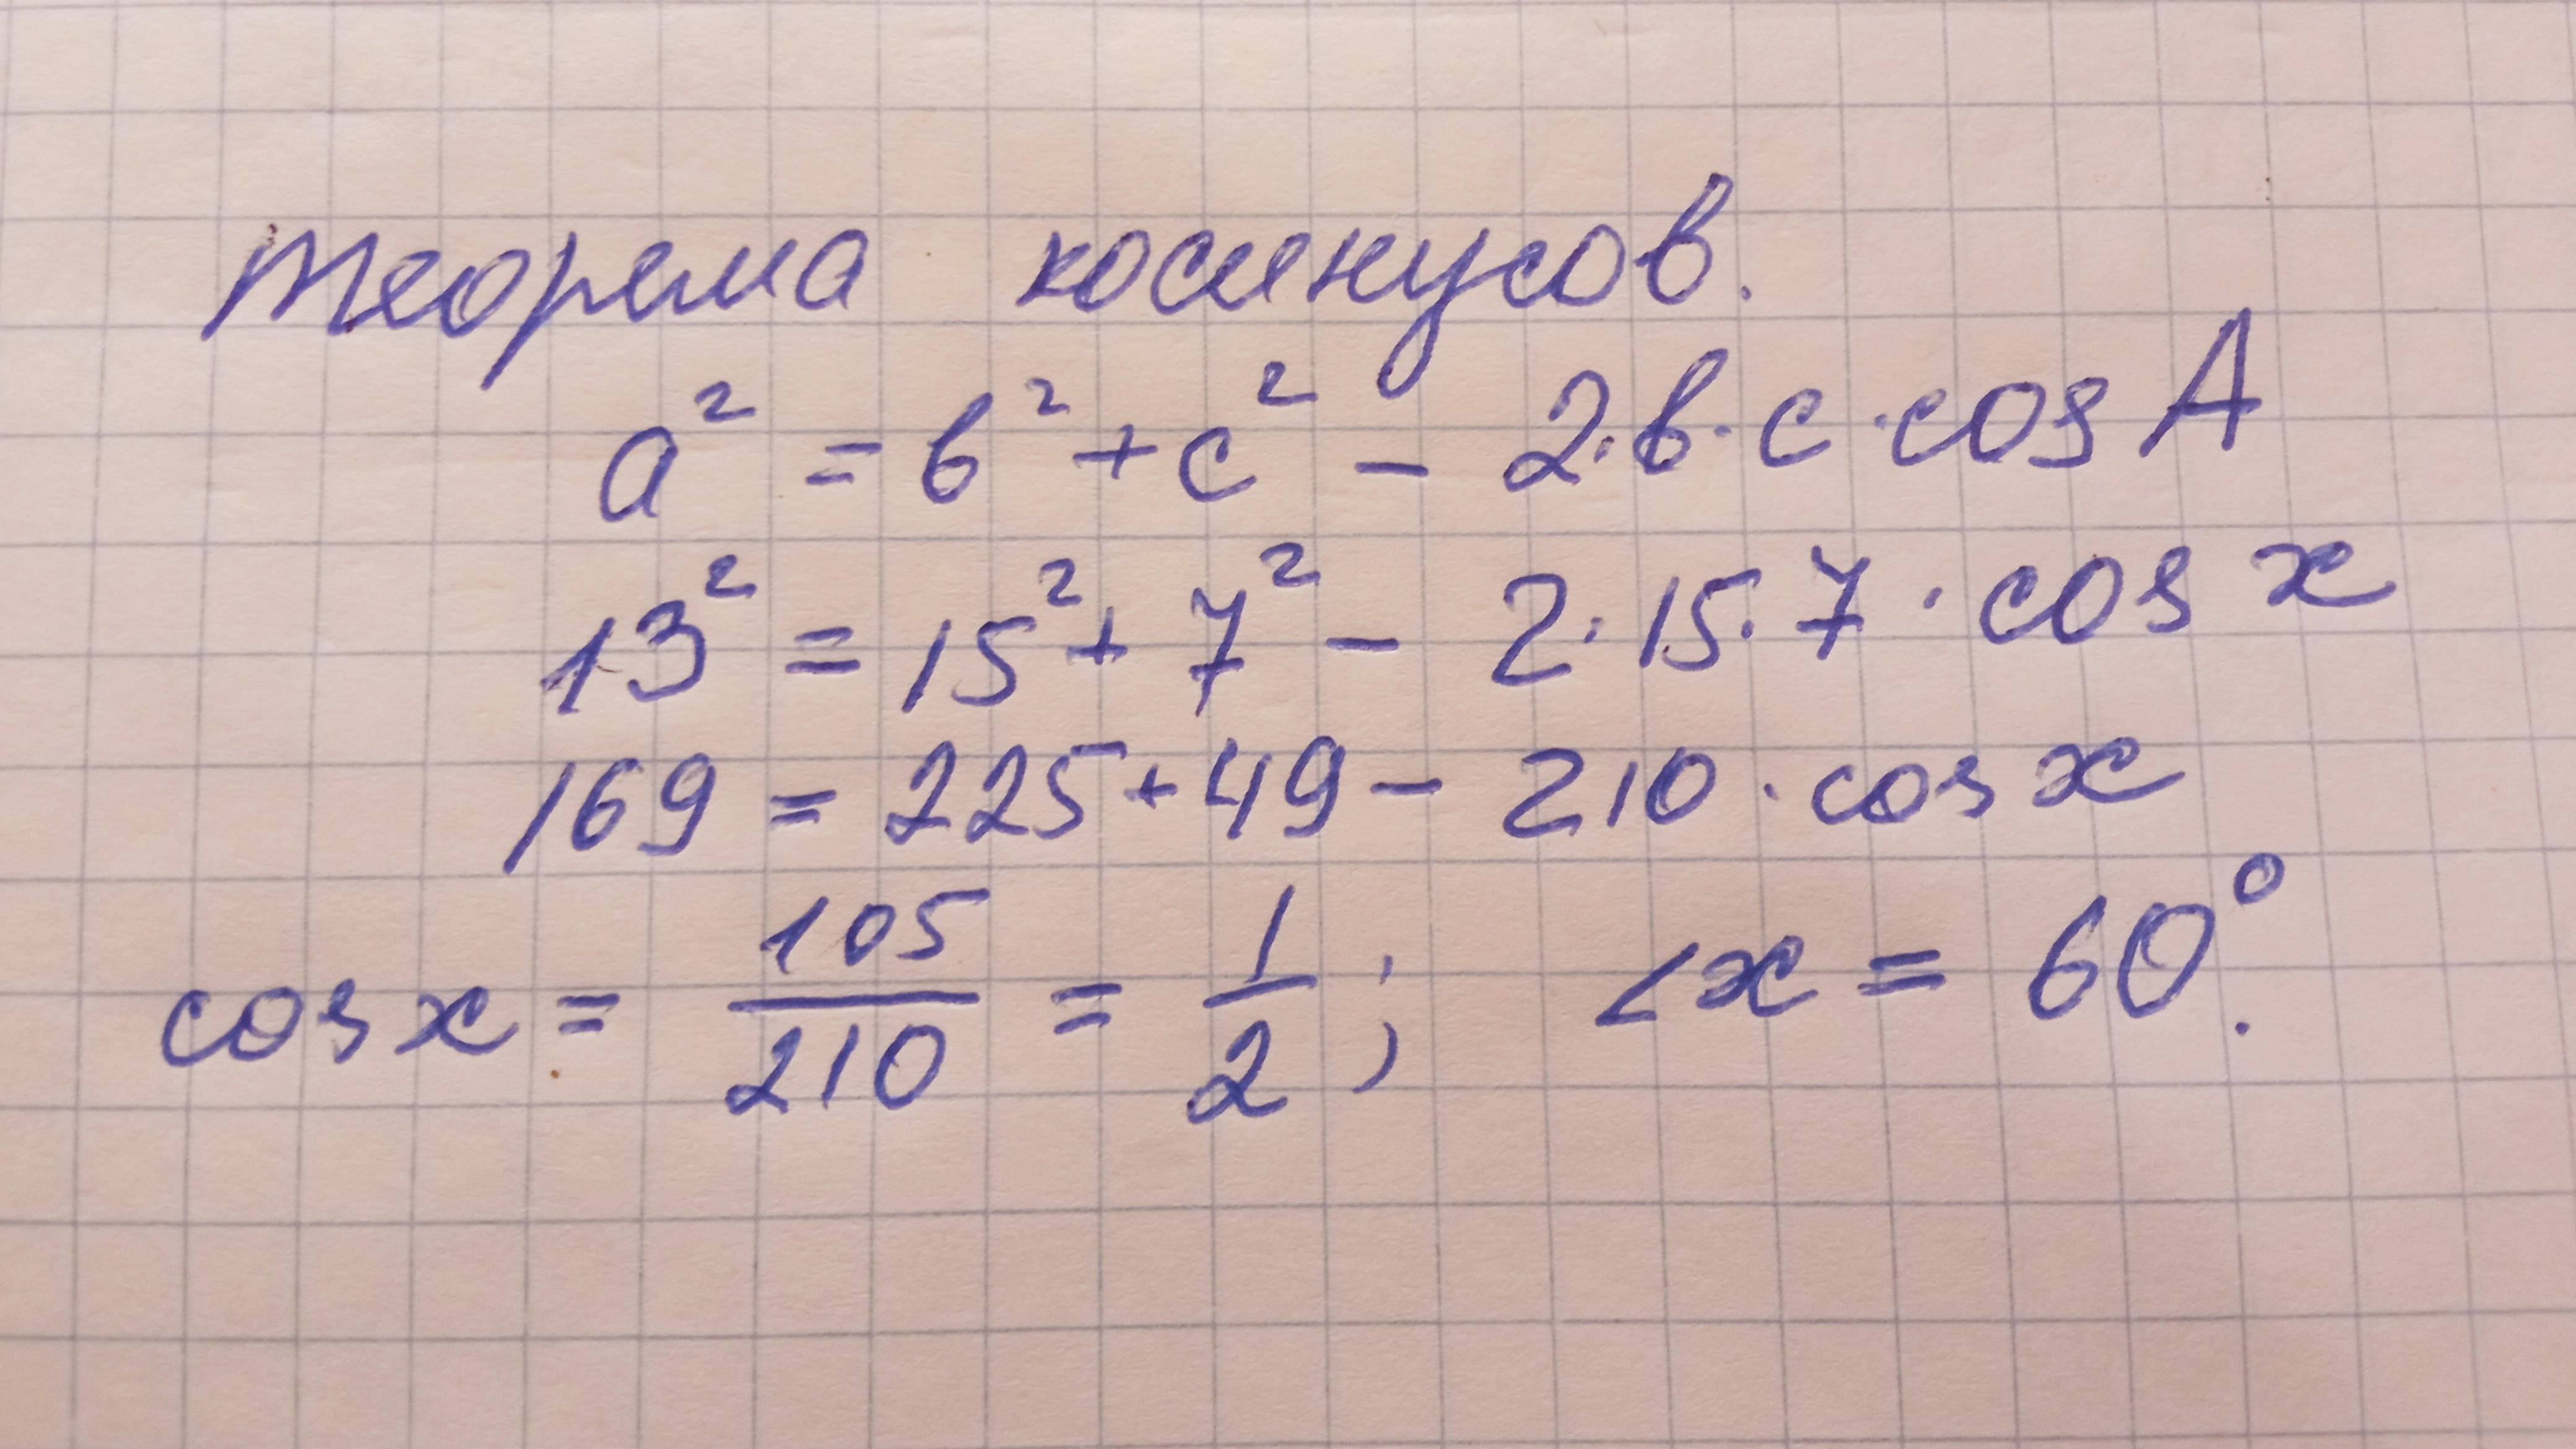 теорема косинусов.
a² = b² + c² - 2·b·c·cos A
13² = 15² + 7² - 2·15·7·cos x
169 = 225 + 49 - 210·cos x
cos x = 105/210 = 1/2; ∠x = 60°.